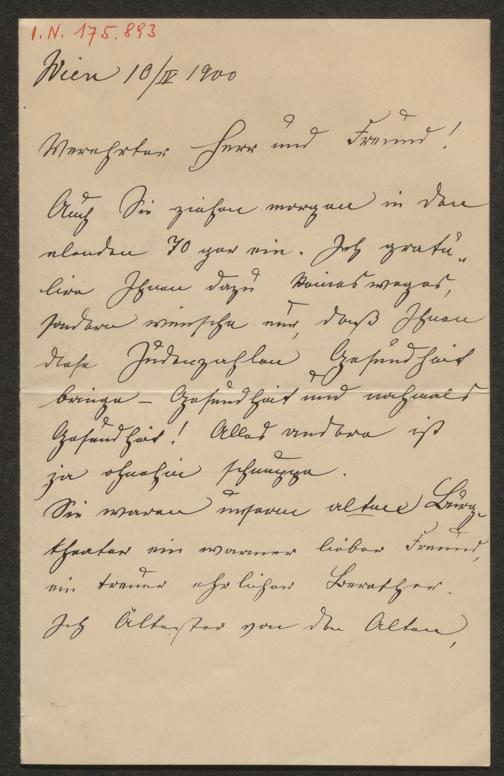 I.N. 175.893
Wien 10/IV 1900
Verehrter Herr und Freund!
Auch Sie ziehen morgen in den
elenden 70 ger ein. Ich gratu„
lire Ihnen dazu keineswegs,
sondern wünsche nur, daß Ihnen
diese Judenzahlen Gesundheit
bringe – Gesundheit und nochmals
Gesundheit! Alles andere ist
ja ohnehin schnuppe.
Sie waren unserm alten Burg-
theater ein warmer lieber Freund,
ein treuer ehrlicher Berather.
Ich Ältester von den Alten,